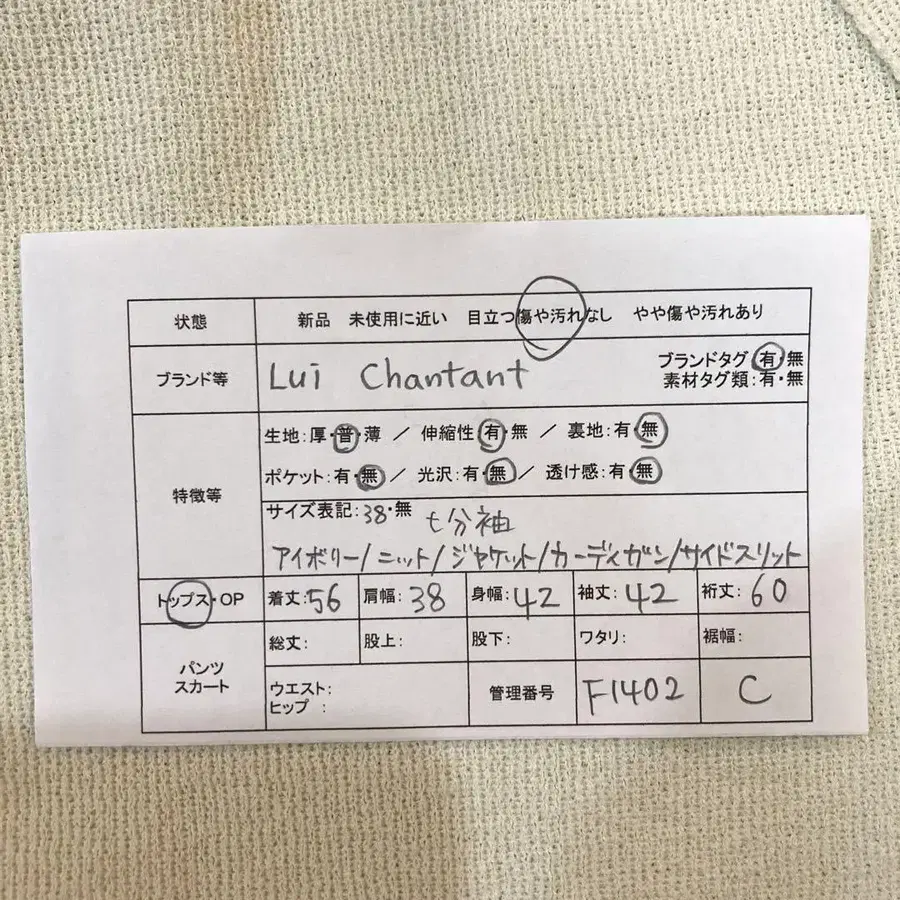 状態 新品 未使用に近い 目立つ傷や汚れなし やや傷や汚れあり
ブランド等 Lui Chantant ブランドタグ:有・無
素材タグ類:有・無
特徴等 生地:厚・普・薄 / 伸縮性:有・無 / 裏地:有・無
ポケット:有・無 / 光沢:有・無 / 透け感:有・無
サイズ表記:38・無 七分袖
アイボリー/ニット/ジャケット/カーディガン/サイドスリット
トップス・OP 着丈:56 肩幅:38 身幅:42 袖丈:42 裄丈:60
パンツ スカート 総丈: 股上: 股下: ワタリ: 裾幅:
ウエスト:
ヒップ : 管理番号 F1402 C